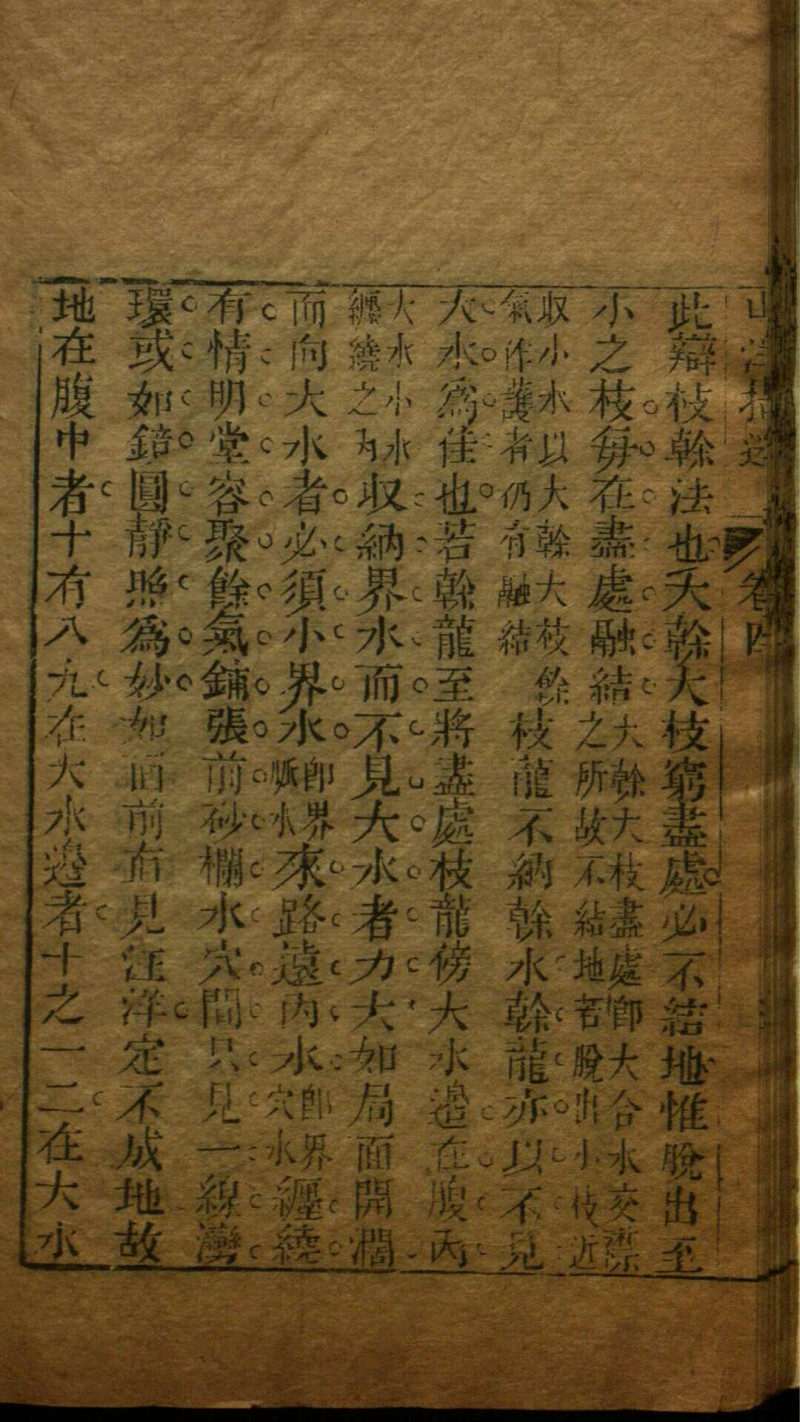 卷四
此辯枝幹法也夭幹大枝窮盡處必不結地惟脫出至
小之枝毎在盡處融結大幹大枝盡處卽大合水交㵿之所故不結地若脫出小枝近
取小水以大幹大枝餘氣作護者仍有融結枝龍不納幹水幹龍亦以不見
大水爲佳也若幹龍至將盡處枝龍傍大水邉在腹內
大水小水纏繞之內收納界水而不見大水者力大如局面開濶
而向大水者必須小界水卽界脈水來路遠內水卽界穴水纒繞
有情明堂容聚餘氣鋪張前砂欄水穴間只見一線灣
環或如鏡圓靜照爲妙如面前有見汪洋定不成地故
地在腹中者十有八九在大水邉者十之一二在大水